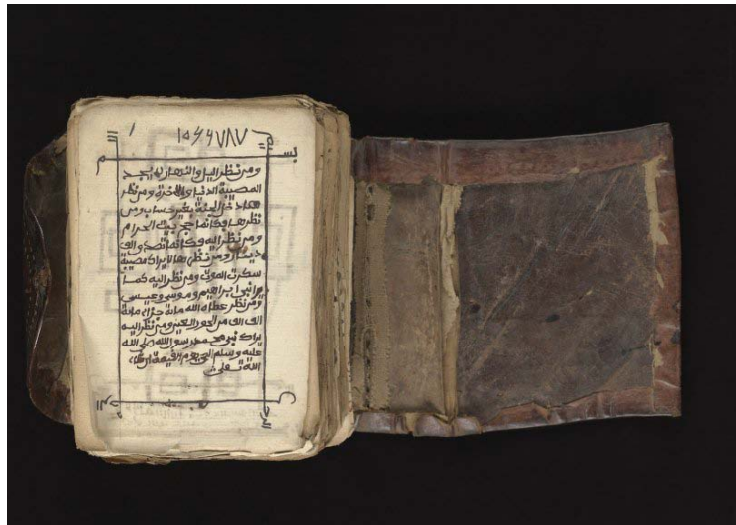 بسم
ومن نظر اليل والنهار لم يجد
المصيبة الدنيا والاخرة ومن نظر
دخل الجنة بغير حساب ومن
نظرها وكانما حج بيت الحرام
ومن نظر اليه وكانما تصدق الف
دينار ومن نظر بها لا يراد مصيبة
سكرت الموت ومن نظر اليه كما
يرانبي ابراهيم وموسى وعيسى
ومن نظر عطاه الله مائة جزاء مائة
الف الف من الحور العين ومن نظر اليه
يراك نبي محمد رسو الله صلى الله
عليه وسلم الى يوم القيمة ان شاء
الله تعلى